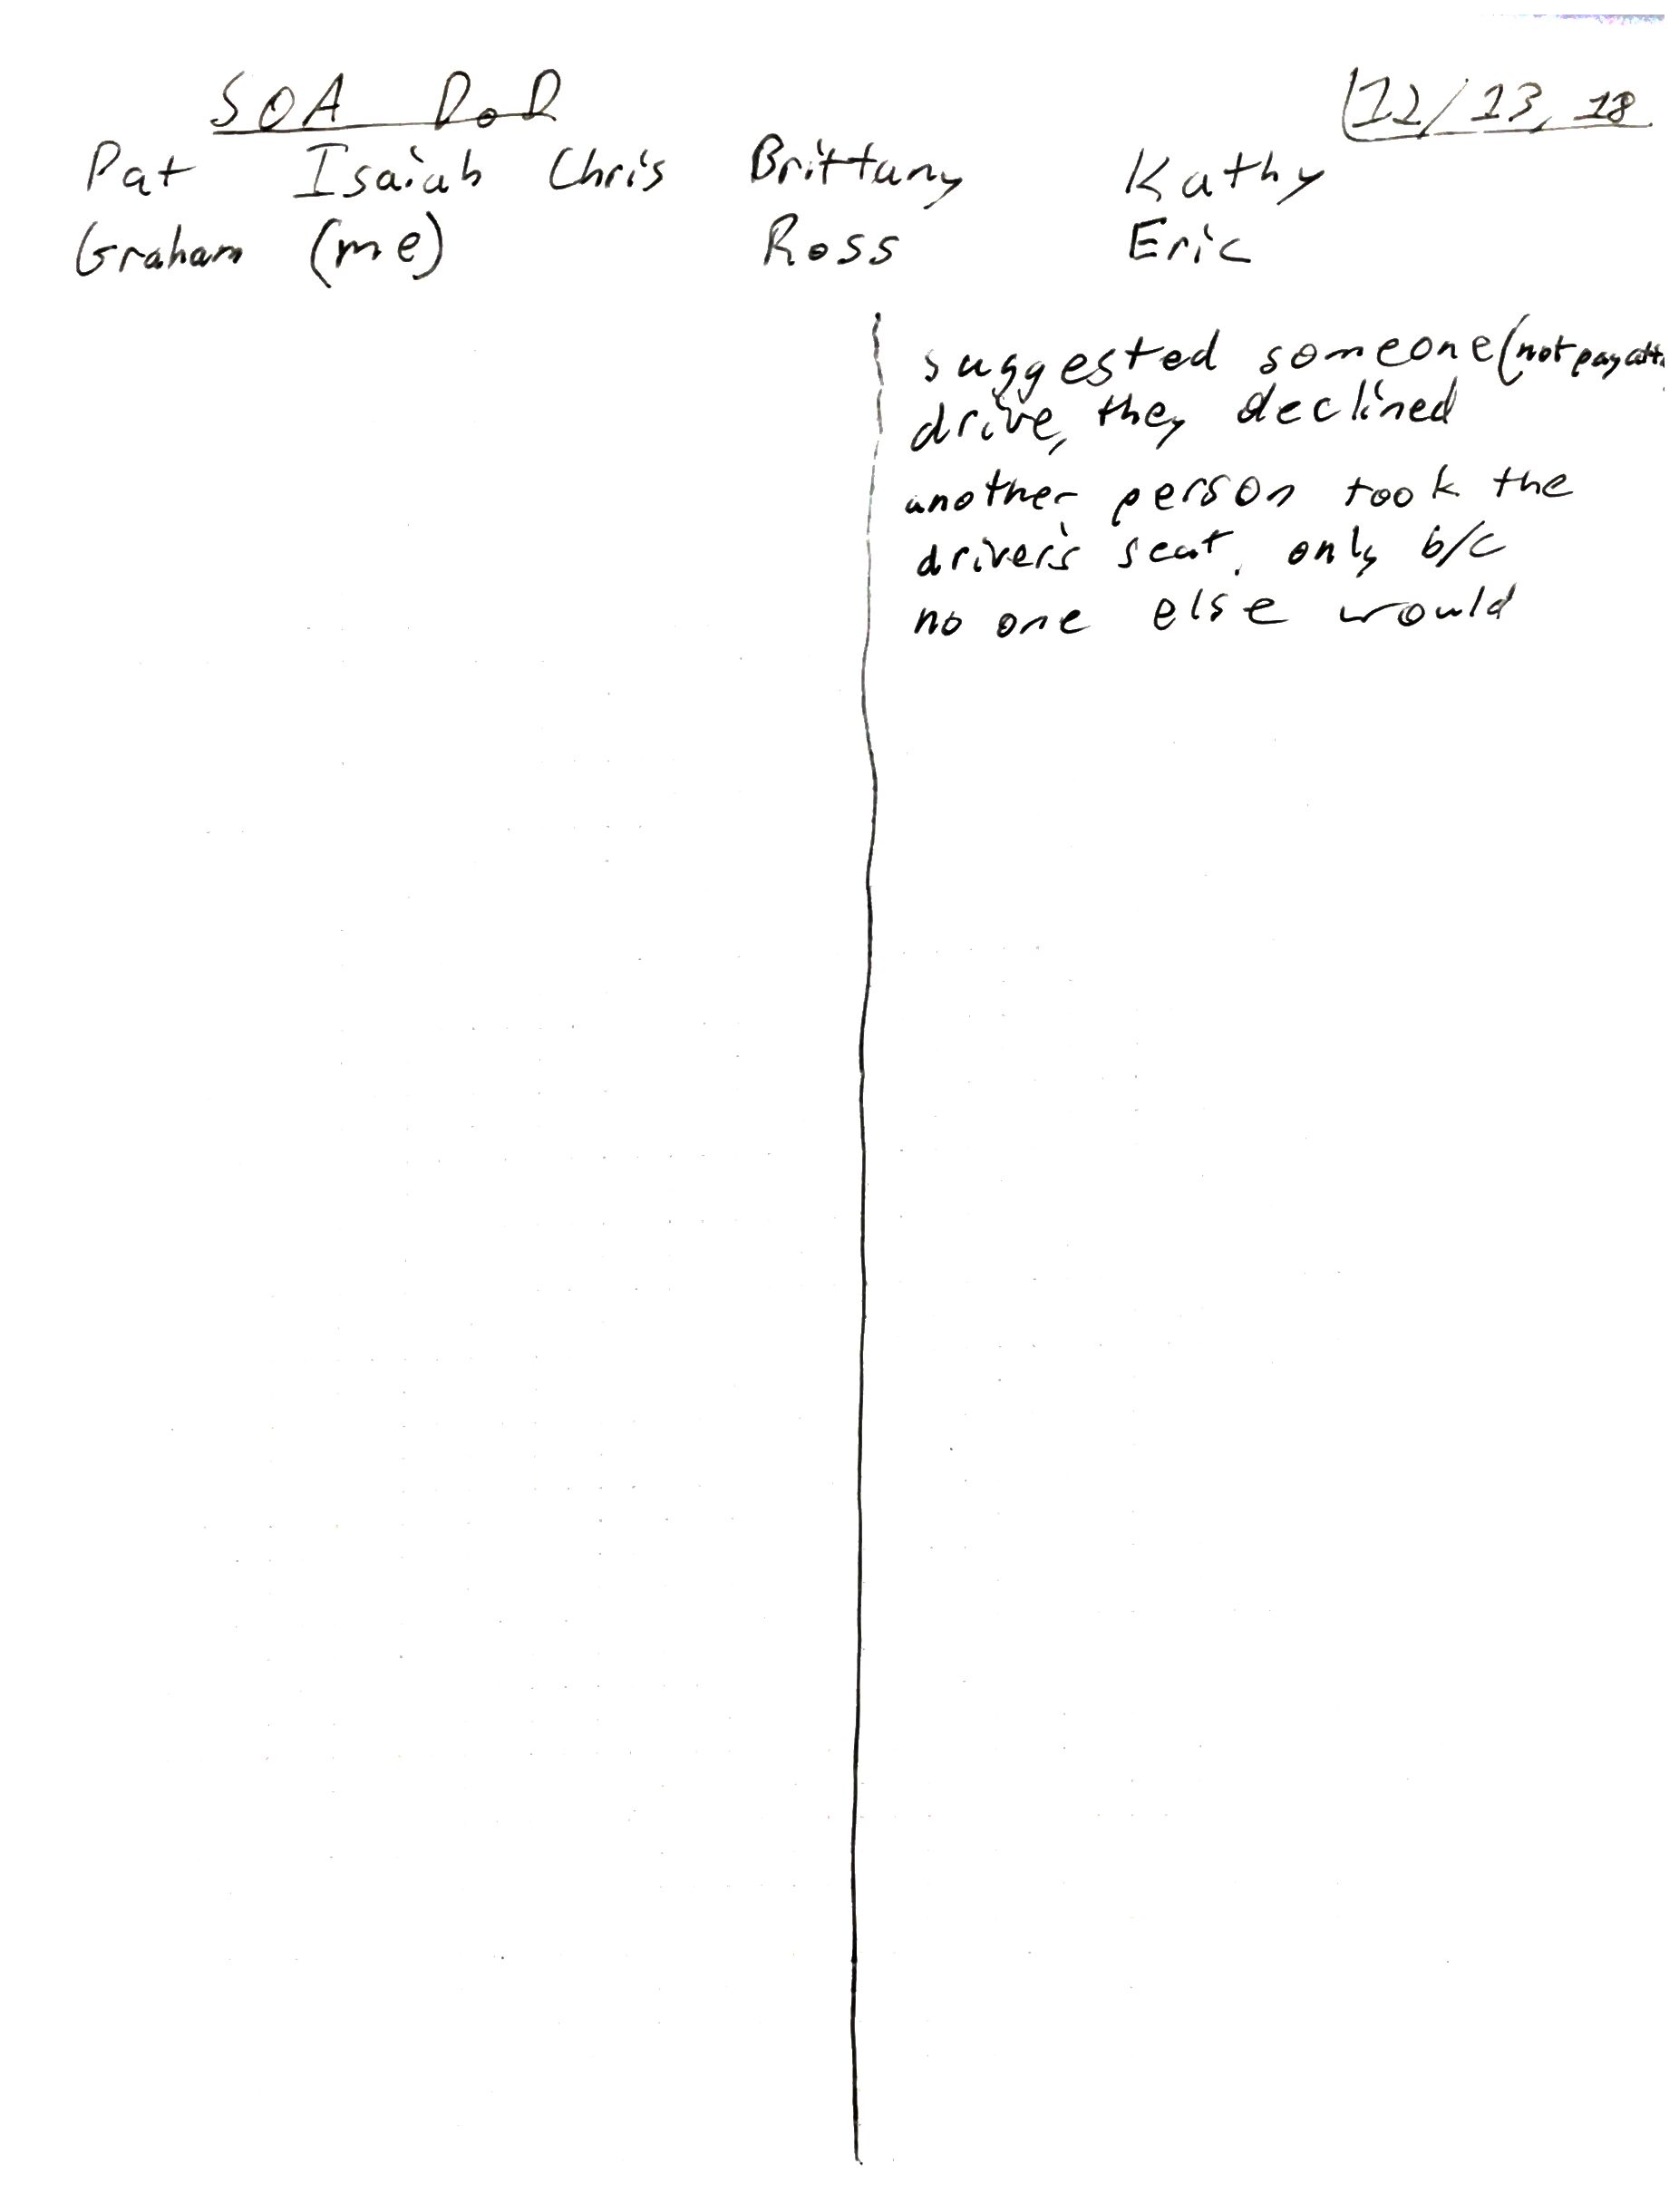 SOA DoD 12/13, 18
Pat Isaiah Chris Brittany Kathy
Graham (me) Ross Eric
suggested someone (not pay att.
drive, they declined
another person took the
driver's seat, only b/c
no one else would